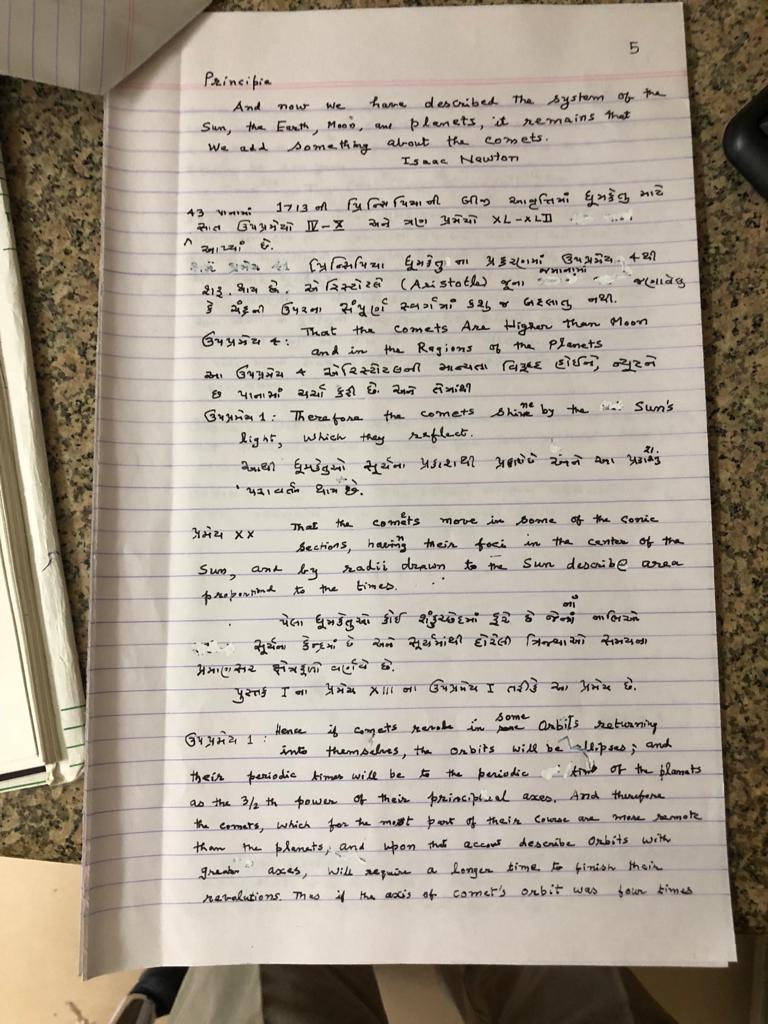 5
Principia
And now we have described the system of the
Sun, the Earth, Moon, and planets, it remains that
We add something about the comets.
Isaac Newton
1713 ની પ્રિન્સિપિયાની બીજી આવૃત્તિમાં ધૂમકેતુ માટે
43 પાનામાં સાત ઉપપ્રમેયો IV-X અને ત્રણ પ્રમેયો XL-XLII
આપ્યાં છે.
પ્રિન્સિપિયા ધૂમકેતુ ના પ્રકરણમાં ઉપપ્રમેય 4થી
શરૂ થાય છે. એરિસ્ટોટલે (Aristotle) જૂના જમાનામાં જણાવેલું
કે ચંદ્રની ઉપરના સંપૂર્ણ સ્વર્ગમાં કશુ જ બદલાતુ નથી.
ઉપપ્રમેય 4: That the comets Are Higher than Moon
and in the Regions of the Planets
આ ઉપપ્રમેય 4 એરિસ્ટોટલની માન્યતા વિરૂદ્ધ હોઈને, ન્યુટને
છ પાનામાં ચર્ચા કરી છે. અને તેમાંથી
ઉપપ્રમેય 1: Therefore the comets shine by the Sun's
light, which they reflect.
આથી ધૂમકેતુઓ સૂર્યના પ્રકાશથી પ્રકાશે છે અને આ પ્રકાશનું
પરાવર્તન થાય છે.
પ્રમેય XX That the comets move in some of the conic
sections, having their foci in the center of the
Sun, and by radii drawn to the Sun describe area
proportional to the times.
પેલા ધૂમકેતુઓ કોઈ શંકુચ્છેદમાં ફરે છે જેનાં નાભિઓ
સૂર્યના કેન્દ્રમાં છે અને સૂર્યમાંથી દોરેલી ત્રિજ્યાઓ સમયના
પ્રમાણસર ક્ષેત્રફળો વર્ણવે છે.
પુસ્તક I ના પ્રમેય XIII ના ઉપપ્રમેય I તરીકે આ પ્રમેય છે.
ઉપપ્રમેય 1: Hence if comets revole in some Orbits returning
into themselves, the orbits will be ellipses; and
their periodic times will be to the periodic time of the planets
as the 3/2 th power of their principal axes. And therefore
the comets, which for the most part of their course are more remote
than the planets, and upon that account describe orbits with
greater axes, will require a longer time to finish their
revolutions. Thus if the axis of comet's orbit was four times